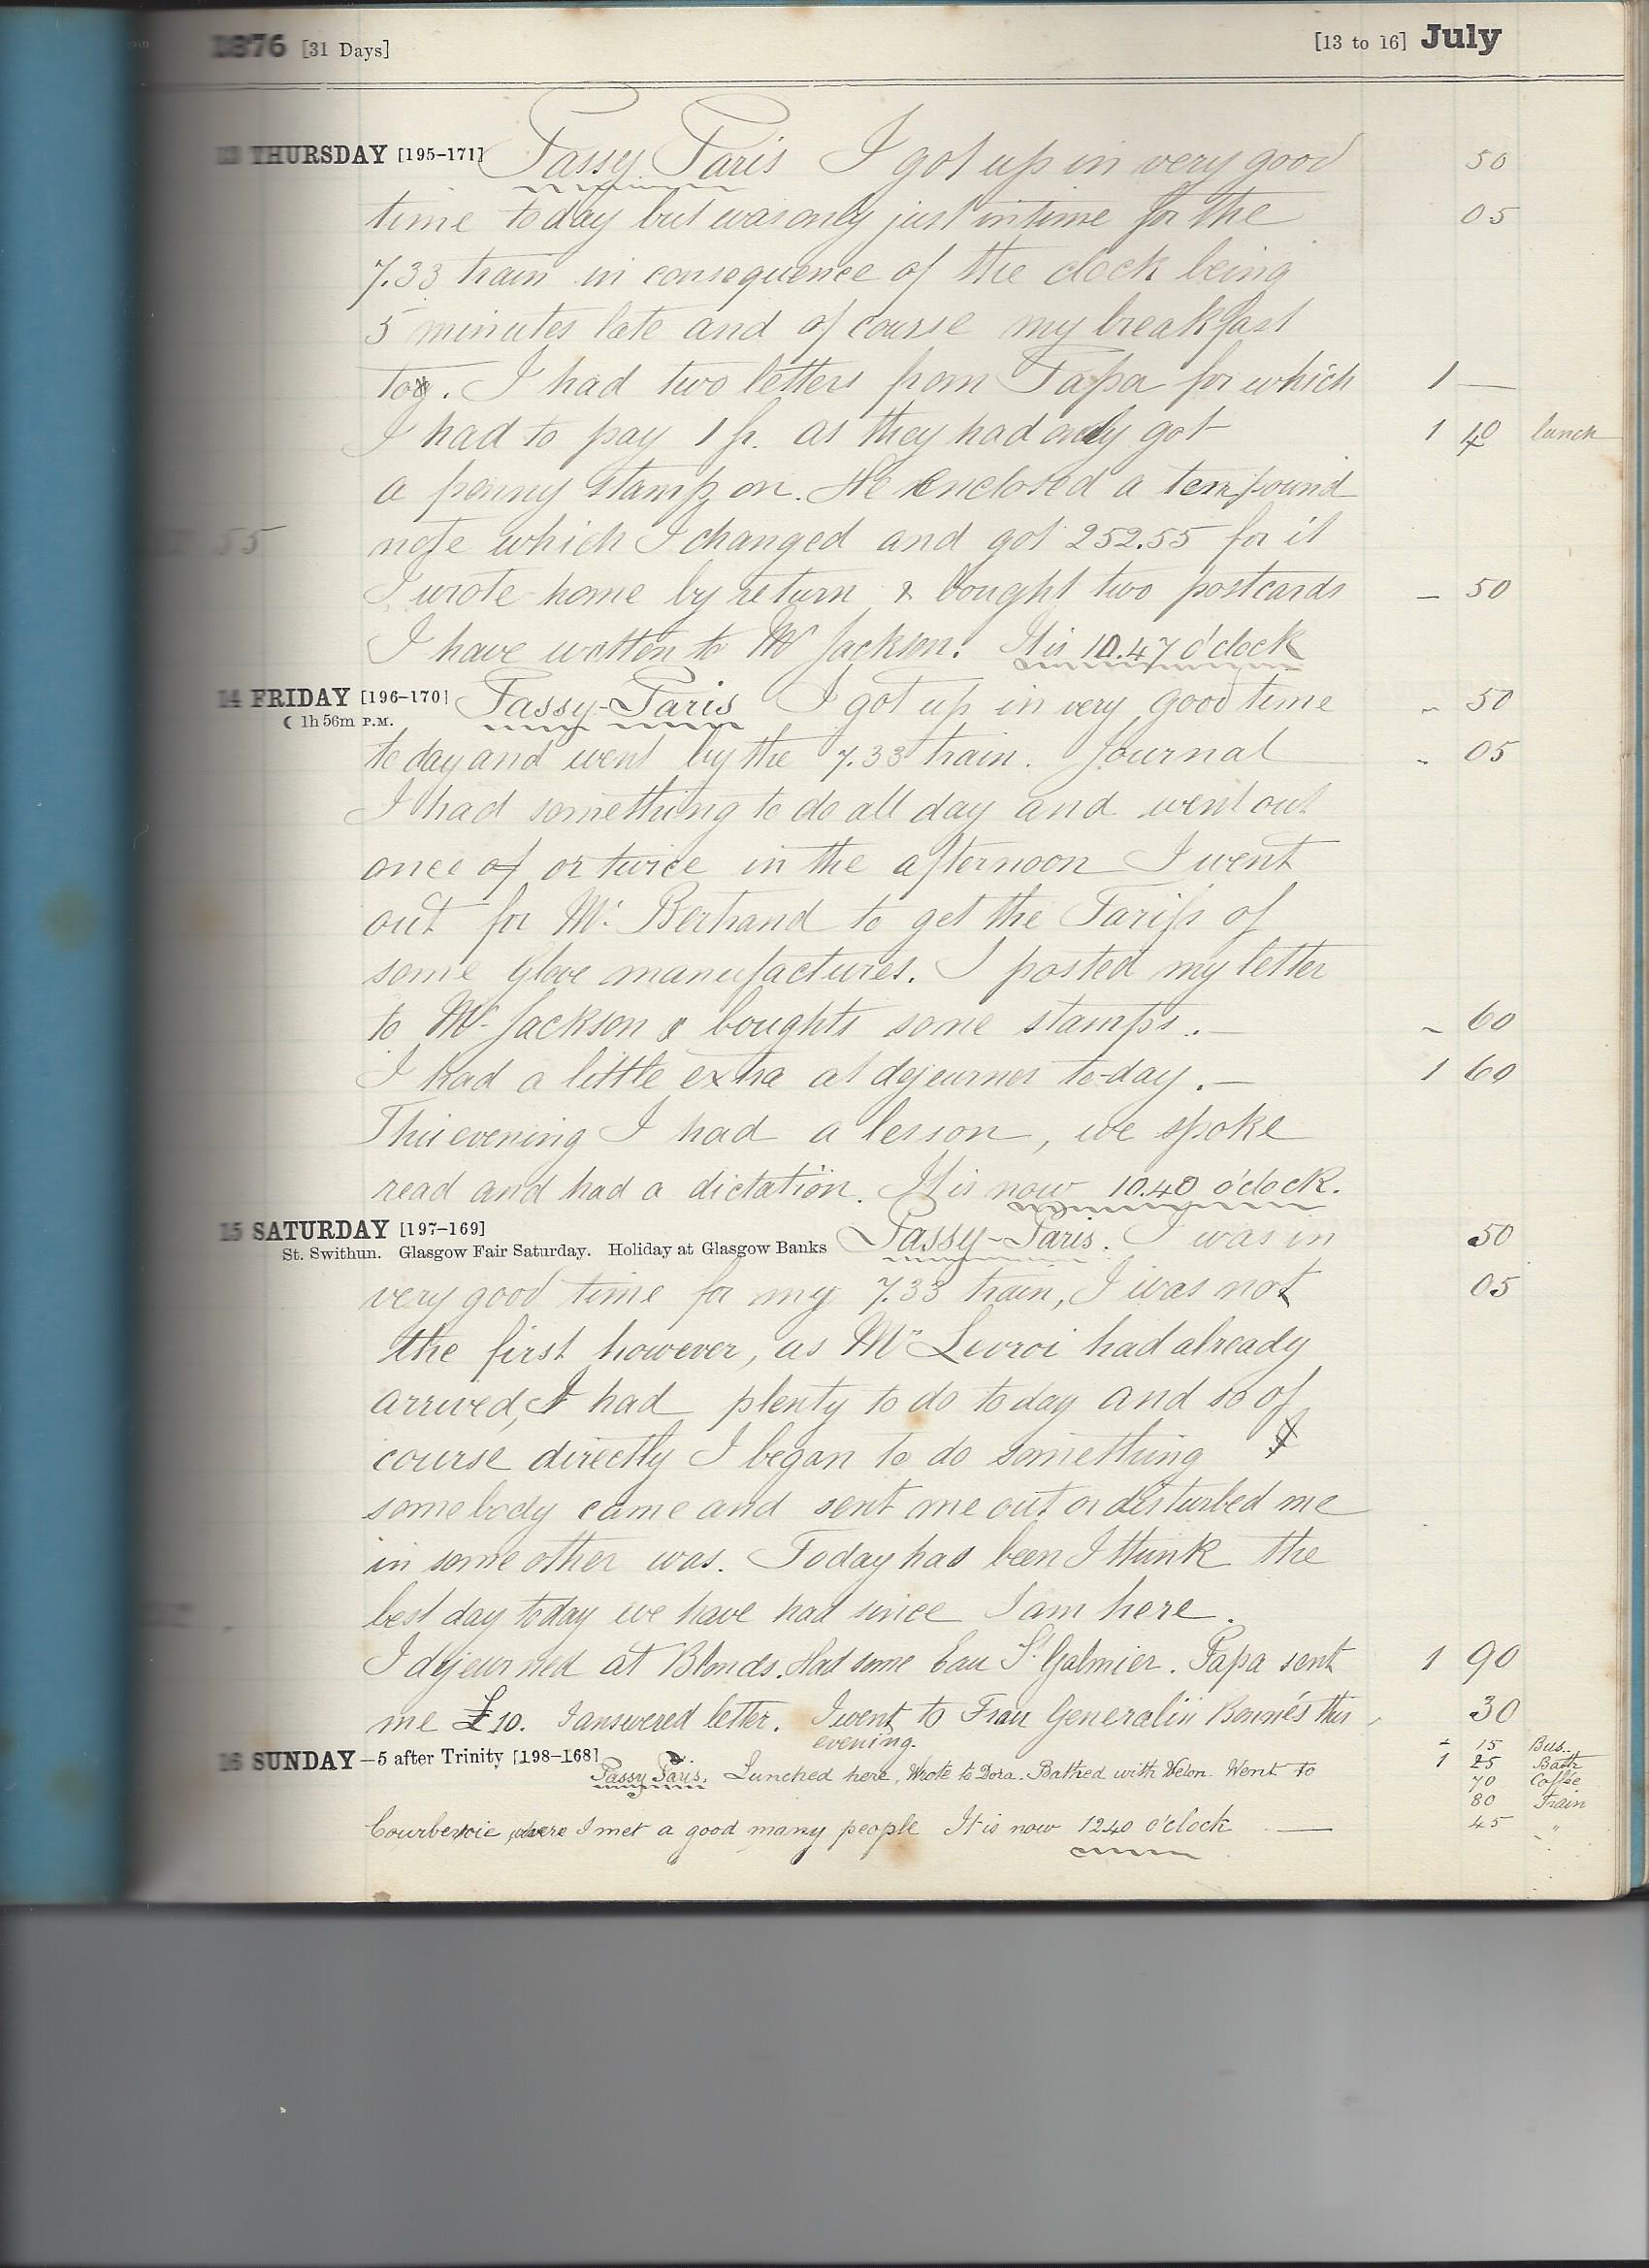 1876 [31 Days] [13 to 16] July
13 THURSDAY [195-171] Passy Paris I got up in very good 50
time today but was only just in time for the 05
7.33 train in consequence of the clock being
5 minutes late and of course my breakfast
too. I had two letters from Papa for which 1 —
I had to pay 1 fr. as they had only got 1 40 lunch
a penny stamp on. He enclosed a ten pound
55 note which I changed and got 252.55 for it
I wrote home by return & bought two postcards — 50
I have written to Mr Jackson. It is 10.47 o'clock
14 FRIDAY [196-170] Passy-Paris I got up in very good time - 50
☾ 1h 56m P.M.
to day and went by the 7.33 train. Journal - 05
I had something to do all day and went out
once of or twice in the afternoon I went
out for Mr. Bertrand to get the Tariffs of
some Glove manufactures. I posted my letter
to Mr Jackson & boughts some stamps. — - 60
I had a little extra at dejeuner to-day. — 1 60
This evening I had a lesson, we spoke
read and had a dictation. It is now 10.40 o'clock.
15 SATURDAY [197-169]
St. Swithun. Glasgow Fair Saturday. Holiday at Glasgow Banks Passy-Paris. I was in 50
very good time for my 7.33 train, I was not 05
the first however, as Mr Levroi had already
arrived, I had plenty to do to day and so of
course directly I began to do something I
somebody came and sent me out or disturbed me
in some other was. Today has been I think the
best day today we have had since I am here.
I dejeurned at Blonds. Had some Eau St. Galmier. Papa sent 1 90
me £10. I answered letter. I went to Frau Generalin Bonnés this 30
evening.
16 SUNDAY—5 after Trinity [198-168] - 15 Bus.
Passy Paris. Lunched here, Wrote to Dora. Bathed with Velon. Went to 1 25 Bath
70 Coffee
80 Train
Courbevoie where I met a good many people It is now 12.40 o'clock — 45 "